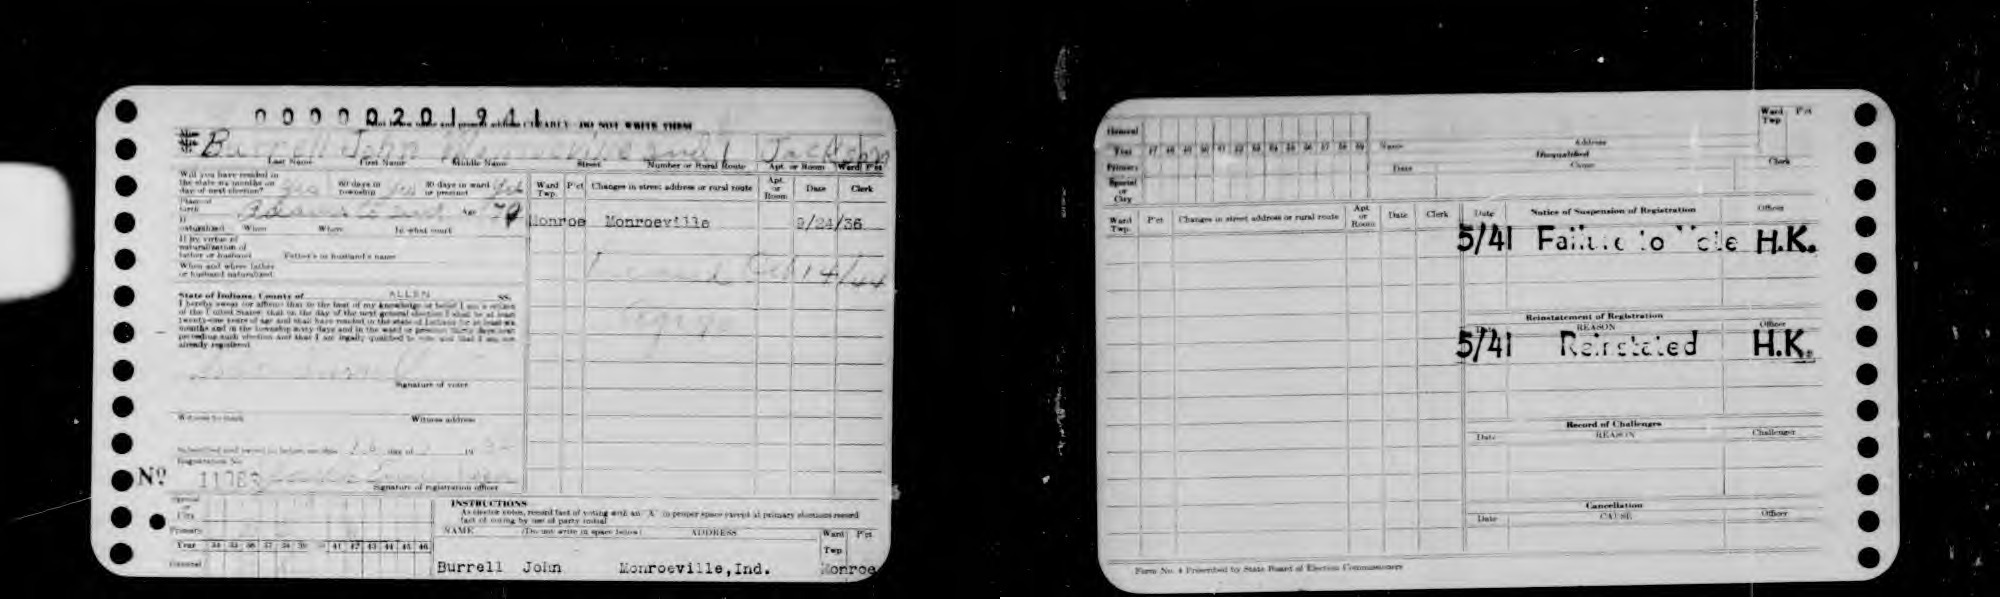 00000201941
CLEARLY DO NOT WRITE THEM
Burrell John Monroeville Ind Jackson
Last Name First Name Middle Name Street Number or Rural Route Apt. or Room Ward P'ct
Will you have resided in
the state six months on
day of next election? yes 60 days in township yes 30 days in ward or precinct yes
Place of birth Adams Co Ind Age
If naturalized When Where In what court
If by virtue of
naturalization of
father or husband Father's or husband's name
When and where father
or husband naturalized
State of Indiana, County of ALLEN SS:
I hereby swear (or affirm) that to the best of my knowledge or belief I am a citizen
of the United States; that on the day of the next general election I shall be at least
twenty-one years of age and shall have resided in the state of Indiana for at least six
months and in the township sixty days and in the ward or precinct thirty days next
preceding such election and that I am legally qualified to vote and that I am not
already registered.
Signature of voter
Witness to mark Witness address
Subscribed and sworn to before me this day of 19
Registration No.
Nº 11783
Signature of registration officer
Ward Twp. P'ct Changes in street address or rural route Apt. or Room Date Clerk
Monroe Monroeville 9/24/36
Oct 14/44
Special or City
Primary
Year 34 35 36 37 38 39 40 41 42 43 44 45 46
General
INSTRUCTIONS
As elector votes, record fact of voting with an "X" in proper space except at primary elections record
fact of voting by use of party initial
NAME (Do not write in space below) ADDRESS Ward Twp. P'ct
Burrell John Monroeville, Ind. Monroe
General
Year 47 48 49 50 51 52 53 54 55 56 57 58 59
Primary
Special or City
Name Address Ward Twp P'ct
Disqualified
Date Cause Clerk
Ward Twp. P'ct Changes in street address or rural route Apt or Room Date Clerk
Date Notice of Suspension of Registration Officer
5/41 Failure to Vote H.K.
Reinstatement of Registration
Date REASON Officer
5/41 Reinstated H.K.
Record of Challenges
Date REASON Challenger
Cancellation
Date CAUSE Officer
Form No. 4 Prescribed by State Board of Election Commissioners